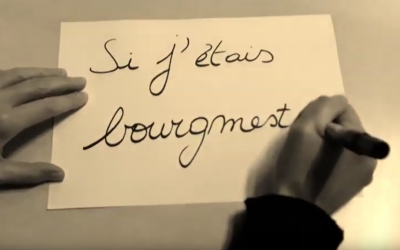 Si j'étais
bourgmest